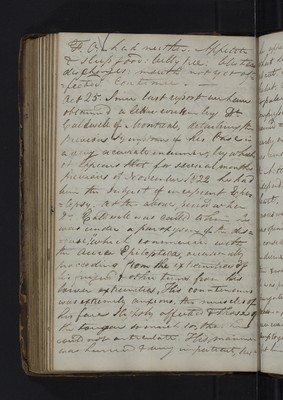 & sleep good: belly free:
discharges; mouth not yet af-
fected. Continue
Oct 25. Since last report we have
obtained a letter written by Dr
Caldwell of Montreal, detailing the
previous symptoms of his case in
a very accurate manner, by which
it appears that for several months
previous to November 1822 he had
been the subject of incipient Epi-
lepsy. At the above period when
Dr Caldwell was called to him he
was under a paroxysm of the dis-
ease, which commenced with
the Aura Epileptica, occasionally
proceeding from the extremities of
his fingers & other times from his
lower extremities. His countenance
was extremely anxious, the muscles of
his face slightly affected & those of
the tongue so much so, that he
could not articulate. His manner
was hurried & very impatient, but